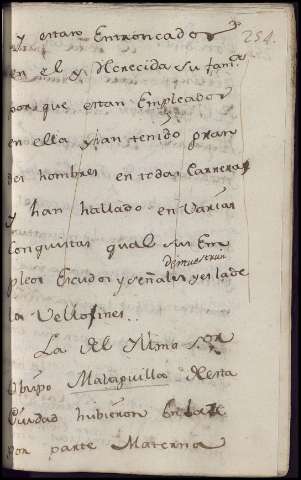 254.
y estan Entroncados
en el y Merecida su fam.ª
por que estan Empleados
en ella y han tenido gran
des hombres en todas Carreras
y han hallado en Varias
Conquistas qual sus Em
demuestran
pleos Escudos y señales y es la de
la Vellosines..
La del Ylmo S.or
Obispo Malaguilla desta
Ciudad hubieron
por parte Materna